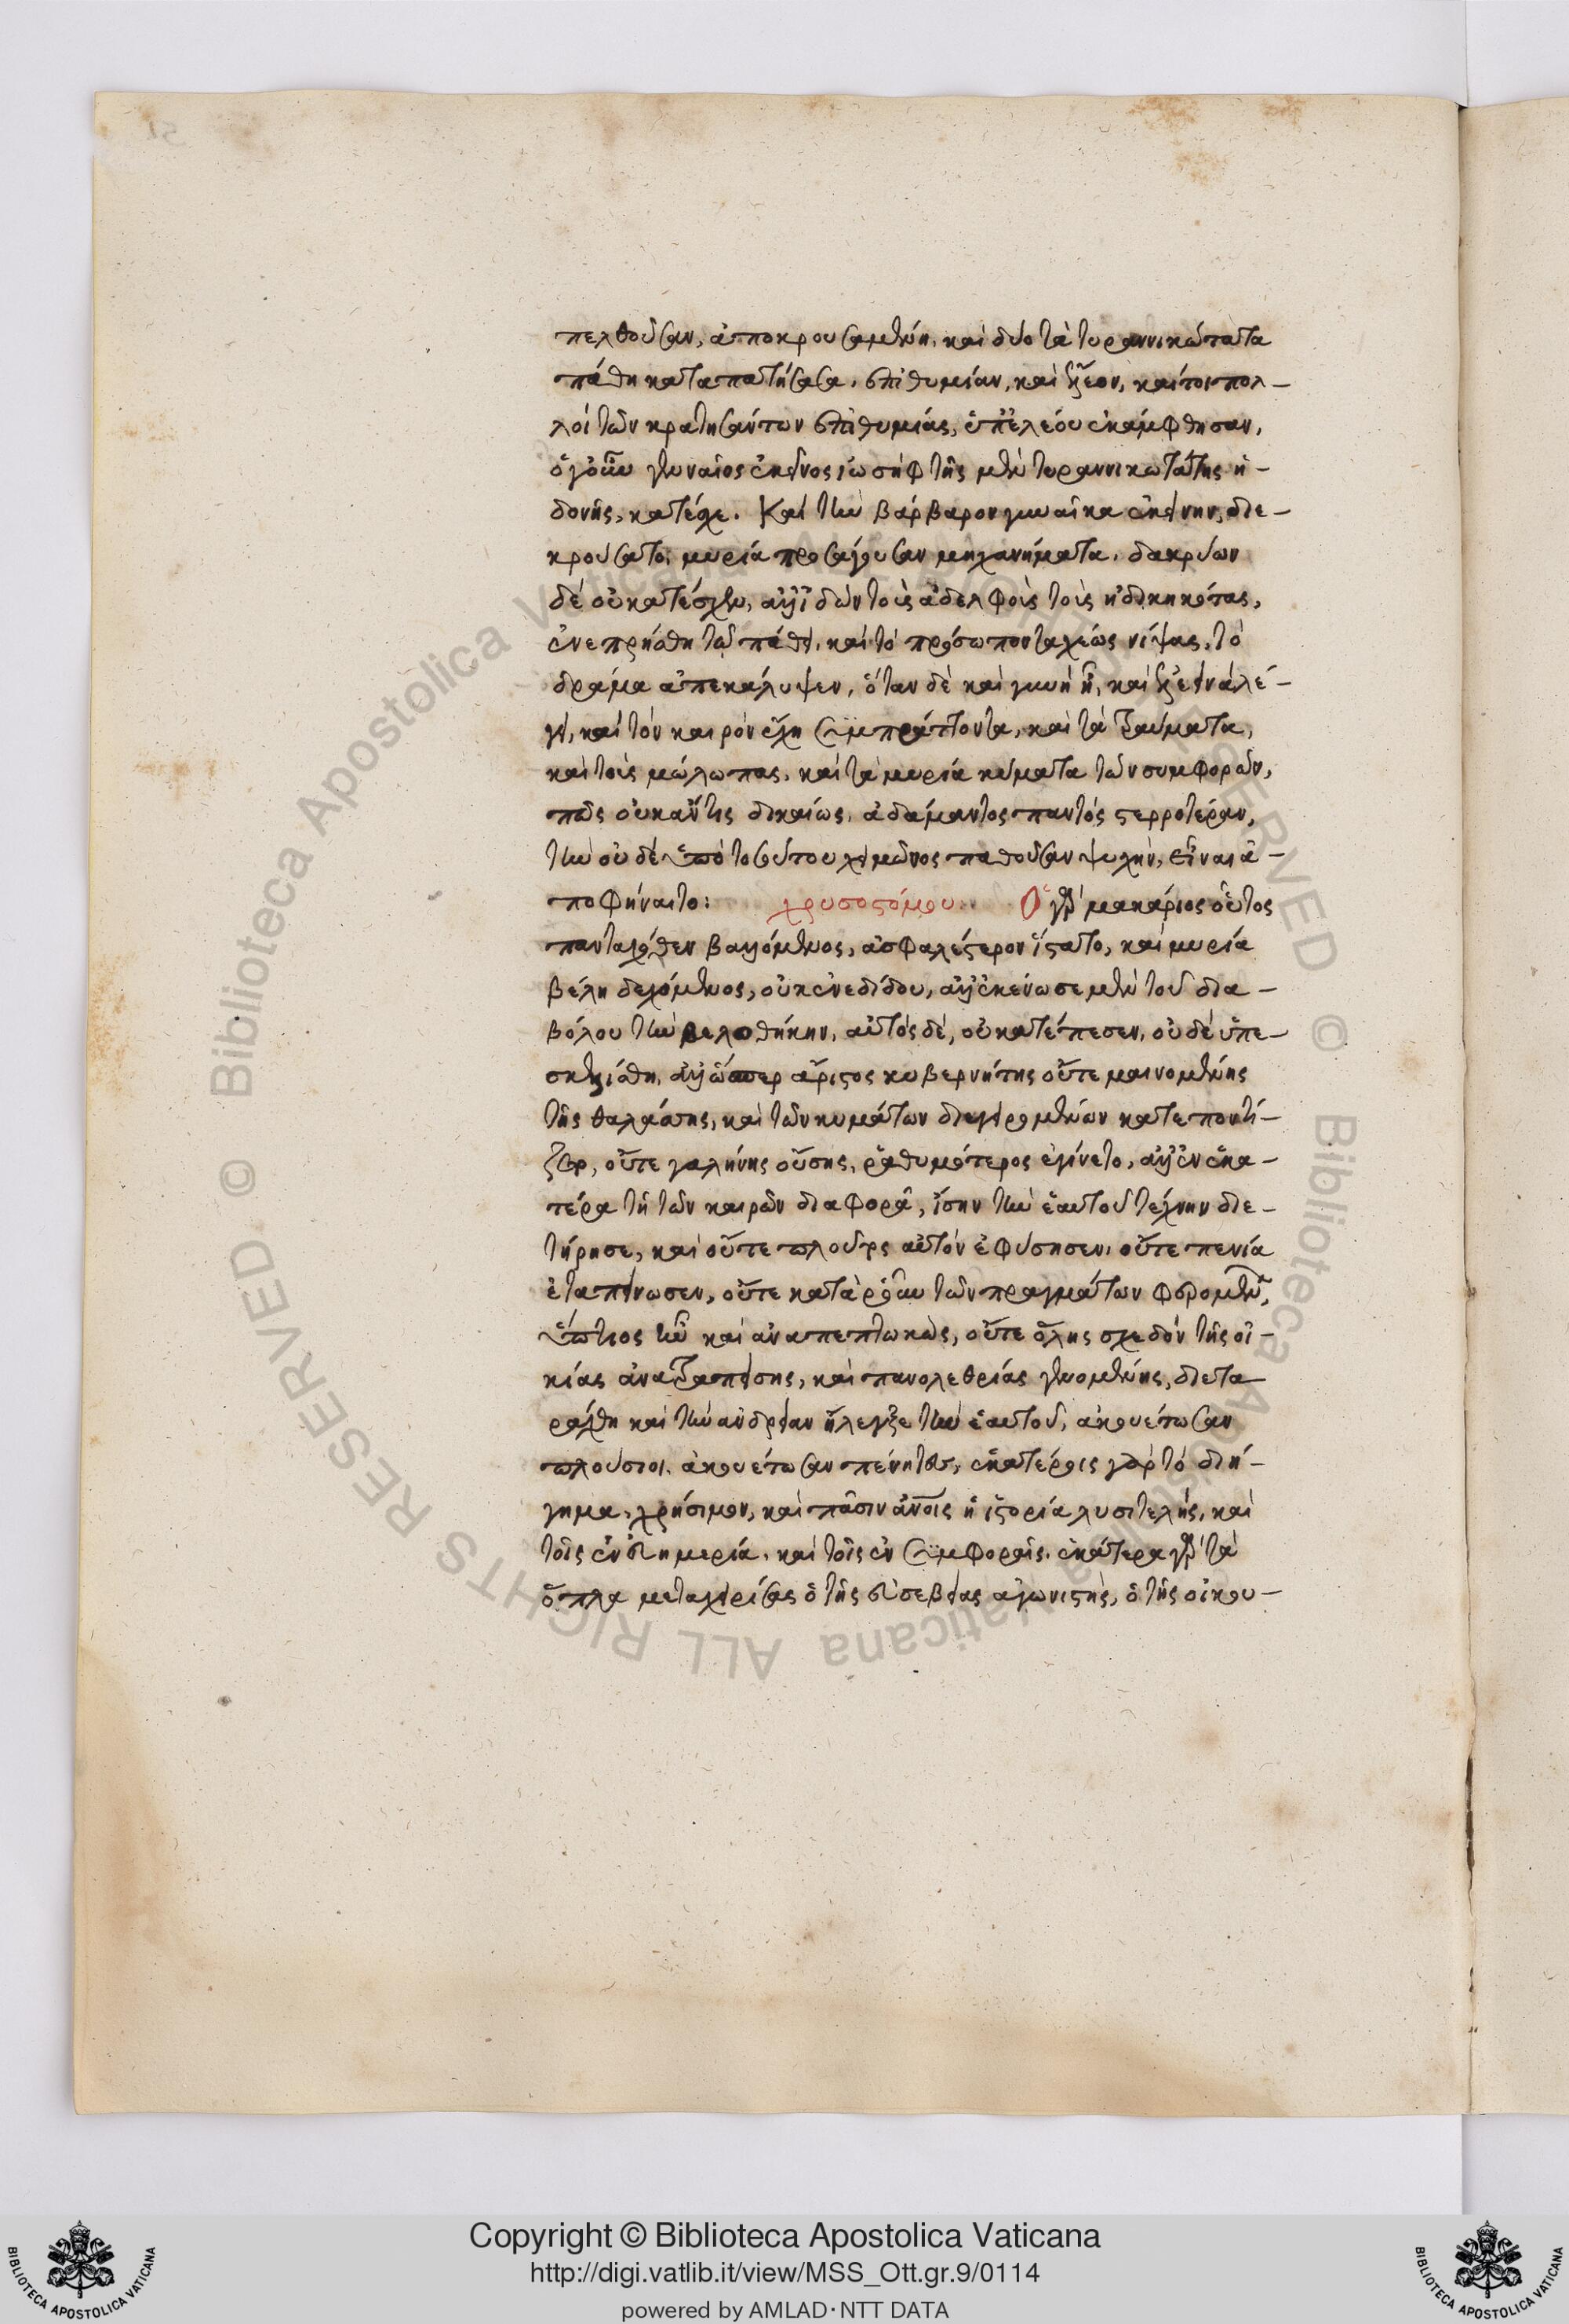 πελθοῦσαν, ἀποκρουσαμένη, καὶ δύο τὰ τυραννικώτατα
πάθη καταπατήσασα, ἐπιθυμίαν, καὶ ἔλεον, καίτοι πολ-
λοὶ τῶν κρατησάντων ἐπιθυμίας, ὑπ' ἐλέου ἐκάμφθησαν,
ὁ γοῦν γενναῖος ἐκεῖνος ἰωσὴφ τῆς μὲν τυραννικωτάτης ἡ-
δονῆς, κατέσχε. Καὶ τὴν βάρβαρον γυναῖκα ἐκείνην, διε-
κρούσατο, μυρία προσάγουσαν μηχανήματα. δακρύων
δὲ οὐ κατέσχεν, ἀλλ' ἰδὼν τοὺς ἀδελφοὺς τοὺς ἠδικηκότας,
ἐνεπρήσθη τῷ πάθει, καὶ τὸ πρόσωπον ταχέως νίψας, τὸ
δράμα ἀπεκάλυψεν, ὅταν δὲ καὶ γυνὴ ᾖ, καὶ ἐλεεινὰ λέ-
γει, καὶ τὸν καιρὸν ἔχῃ συμπράττοντα, καὶ τὰ τραύματα,
καὶ τοὺς μώλωπας, καὶ τὰ μυρία κύματα τῶν συμφορῶν,
πῶς οὐκ ἄν τις δικαίως, ἀδάμαντος παντὸς στερροτέραν,
τὴν οὐδὲν ὑπὸ τοσούτου χειμῶνος παθοῦσαν ψυχὴν, εἶναι ἀ-
ποφήναιτο: χρυσοστόμου. Ὁ γὰρ μακάριος οὗτος
πανταχόθεν βαλλόμενος, ἀσφαλέστερον ἵστατο, καὶ μυρία
βέλη δεχόμενος, οὐκ ἐνεδίδου, ἀλλ' ἐκένωσε μὲν τοῦ δια-
βόλου τὴν βελοθήκην, αὐτὸς δὲ, οὐ κατέπεσεν, οὐδὲ ὑπε-
σκελίσθη, ἀλλ' ὥσπερ ἄριστος κυβερνήτης οὔτε μαινομένης
τῆς θαλάσσης, καὶ τῶν κυμάτων διεγειρομένων κατεποντί-
ζετο, οὔτε γαλήνης οὔσης, ῥαθυμότερος ἐγίνετο, ἀλλ' ἐν ἑκα-
τέρα τῇ τῶν καιρῶν διαφορᾶ, ἴσην τὴν ἑαυτοῦ τέχνην διε-
τήρησε, καὶ οὔτε πλοῦτος αὐτὸν ἐφύσησεν, οὔτε πενία
ἐταπείνωσεν, οὔτε κατὰ ῥοῦν τῶν πραγμάτων φερομένων,
ὕπτιος ἦν καὶ ἀναπεπτωκὼς, οὔτε ὅλης σχεδὸν τῆς οἰ-
κίας ἀνατραπείσης, καὶ πανολεθρίας γενομένης, διετα
ράχθη καὶ τὴν ἀνδρείαν ἤλεγξε τὴν ἑαυτοῦ, ἀκουέτωσαν
πλούσιοι, ἀκουέτωσαν πένητες, ἑκατέροις γὰρ τὸ διή-
γημα, χρήσιμον, καὶ πᾶσιν ἀνοις ἡ ἱστορία λυσιτελής, καὶ
τοῖς ἐν εὐημερία, καὶ τοῖς ἐν συμφοραῖς, ἑκάτερα γὰρ τὰ
ὅπλα μεταχειρίσας ὁ τῆς εὐσεβείας ἀγωνιστὴς, ὁ τῆς οἰκου-
51
Copyright © Biblioteca Apostolica Vaticana
http://digi.vatlib.it/view/MSS_Ott.gr.9/0114
powered by AMLAD·NTT DATA
BIBLIOTECA APOSTOLICA VATICANA
BIBLIOTECA APOSTOLICA VATICANA
© Biblioteca Apostolica Vaticana ALL RIGHTS RESERVED © Biblioteca Apostolica Vaticana ALL RIGHTS RESERVED